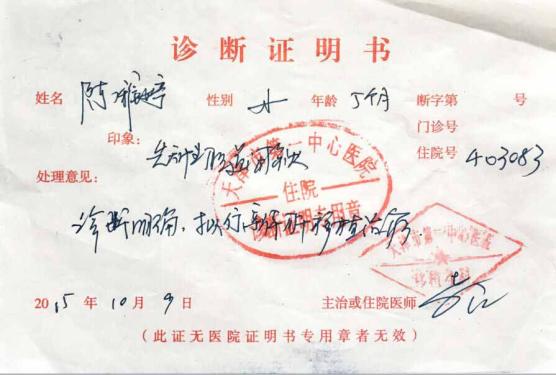 诊断证明书
姓名 陈雅婷 性别 女 年龄 5个月 断字第 号
印象: 门诊号
先天性胆道闭锁 住院号 403083
处理意见:
天津市第一中心医院
住院
诊断证明专用章
诊断明确,拟行亲体肝移植治疗.
天津市第一中心医院
2015年10月9日 主治或住院医师
(此证无医院证明书专用章者无效)